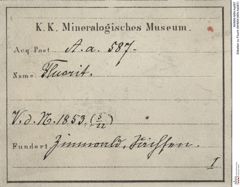 K. K. Mineralogisches Museum.
Acq. Post A. a. 587.
Name: Fluorit.
V. d. N. 1853. (5/22)
Fundort Zinnwald, Sachsen.
I